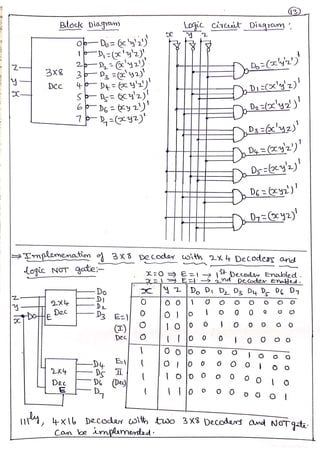 13
Block Diagram
Logic Circuit Diagram:
x y z
0 D0=(x'y'z')'
1 D1=(x'y'z)'
2 D2=(x'yz')'
3 D3=(x'yz)'
4 D4=(xy'z')'
5 D5=(xy'z)'
6 D6=(xyz')'
7 D7=(xyz)'
z
y
x
3x8
Dcc
D0=(x'y'z')'
D1=(x'y'z)'
D2=(x'yz')'
D3=(x'yz)'
D4=(xy'z')'
D5=(xy'z)'
D6=(xyz')'
D7=(xyz)'
⇒ Implemenation of 3x8 Decoder with 2x4 Decoders and
Logic NOT gate:-
x=0 ⇒ E=1 → 1st Decoder Enabled.
x=1 ⇒ E=1 → 2nd Decoder Enabled.
z
y
x
2x4
Dec
E
D0
D1
D2
D3
2x4
Dec
E
D4
D5
D6
D7
x y z D0 D1 D2 D3 D4 D5 D6 D7
0 0 0 1 0 0 0 0 0 0 0
E=1 0 0 1 0 1 0 0 0 0 0 0
(I) 0 1 0 0 0 1 0 0 0 0 0
Dec 0 1 1 0 0 0 1 0 0 0 0
1 0 0 0 0 0 0 1 0 0 0
E=1 1 0 1 0 0 0 0 0 1 0 0
II 1 1 0 0 0 0 0 0 0 1 0
(Dec) 1 1 1 0 0 0 0 0 0 0 1
IIIly, 4x16 Decoder with two 3x8 Decoders and NOT gate
can be implemented.